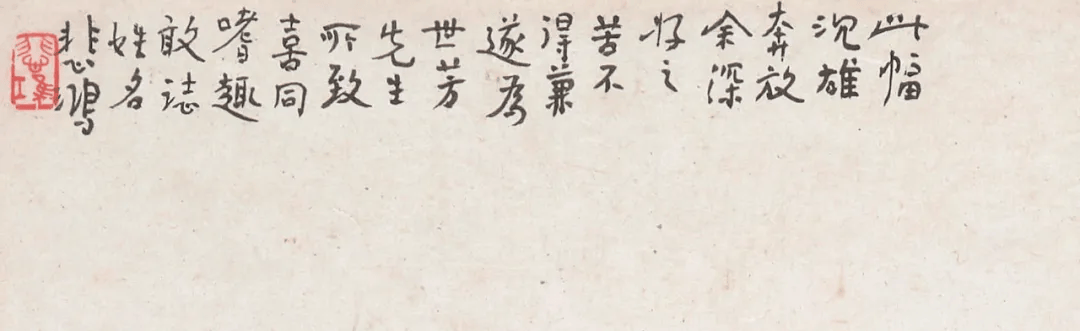 此幅
沉雄
奔放
余深
好之
苦不
得兼
遂為
世芳
先生
所致
喜同
嗜趣
敢誌
姓名
悲鴻